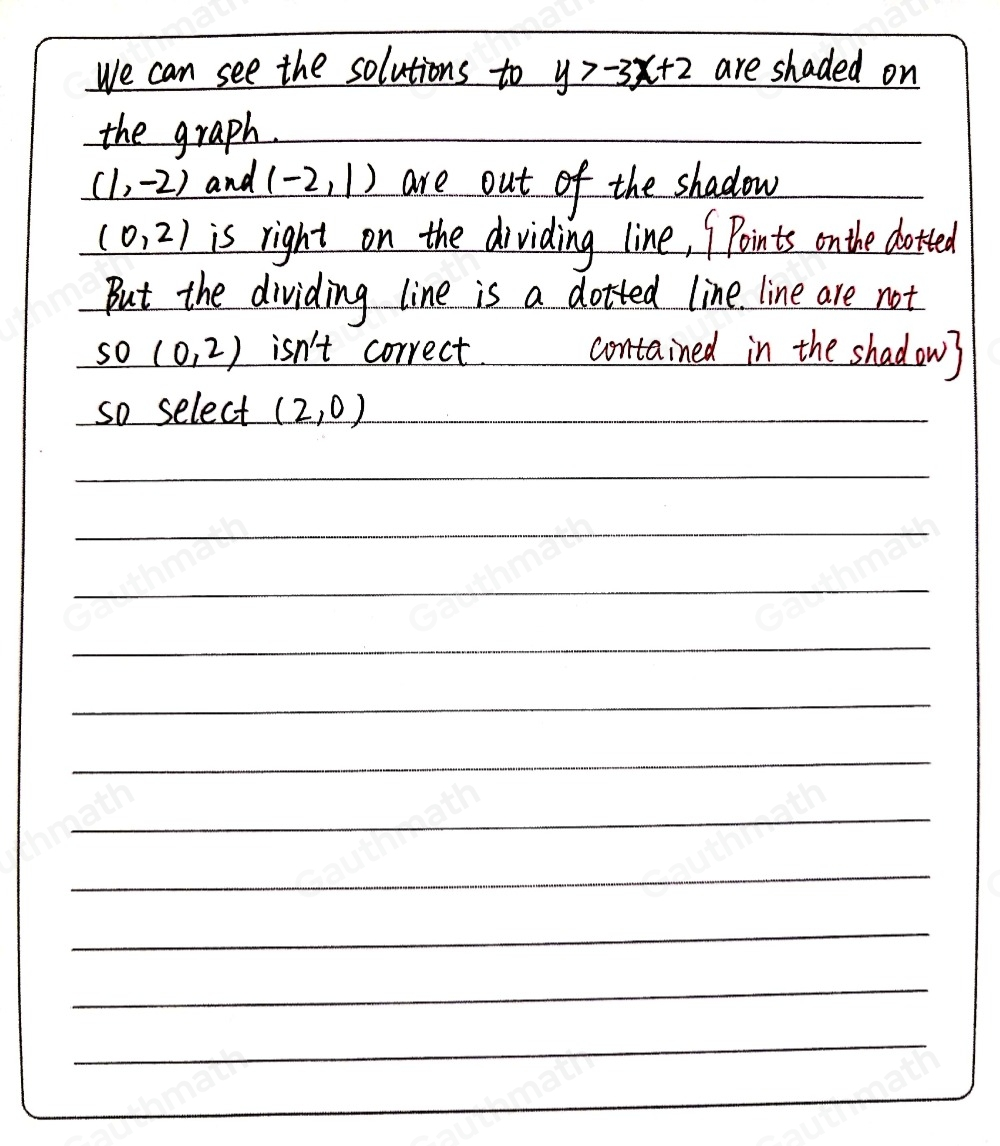 We can see the solutions to y>-3x+2 are shaded on
the graph.
(1,-2) and (-2,1) are out of the shadow
(0,2) is right on the dividing line, {Points on the dotted
But the dividing line is a dotted line. line are not
so (0,2) isn't correct. contained in the shadow}
so select (2,0)
Gauthmath